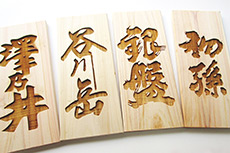 澤乃井
谷川岳
銀盤
初孫